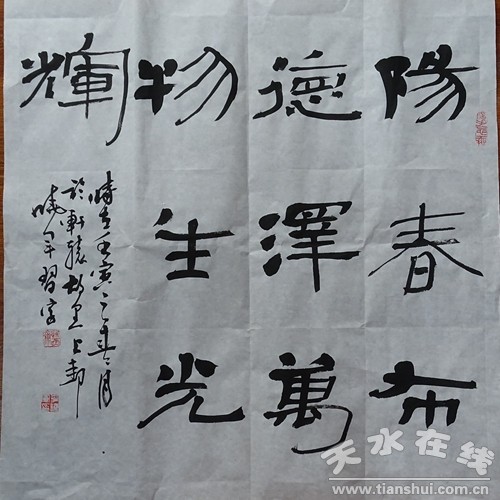 陽春布
德澤萬
物生光
輝
時在壬寅之年 月
於軒轅故里上邽
曉軍習字
天水在线
www.tianshui.com.cn